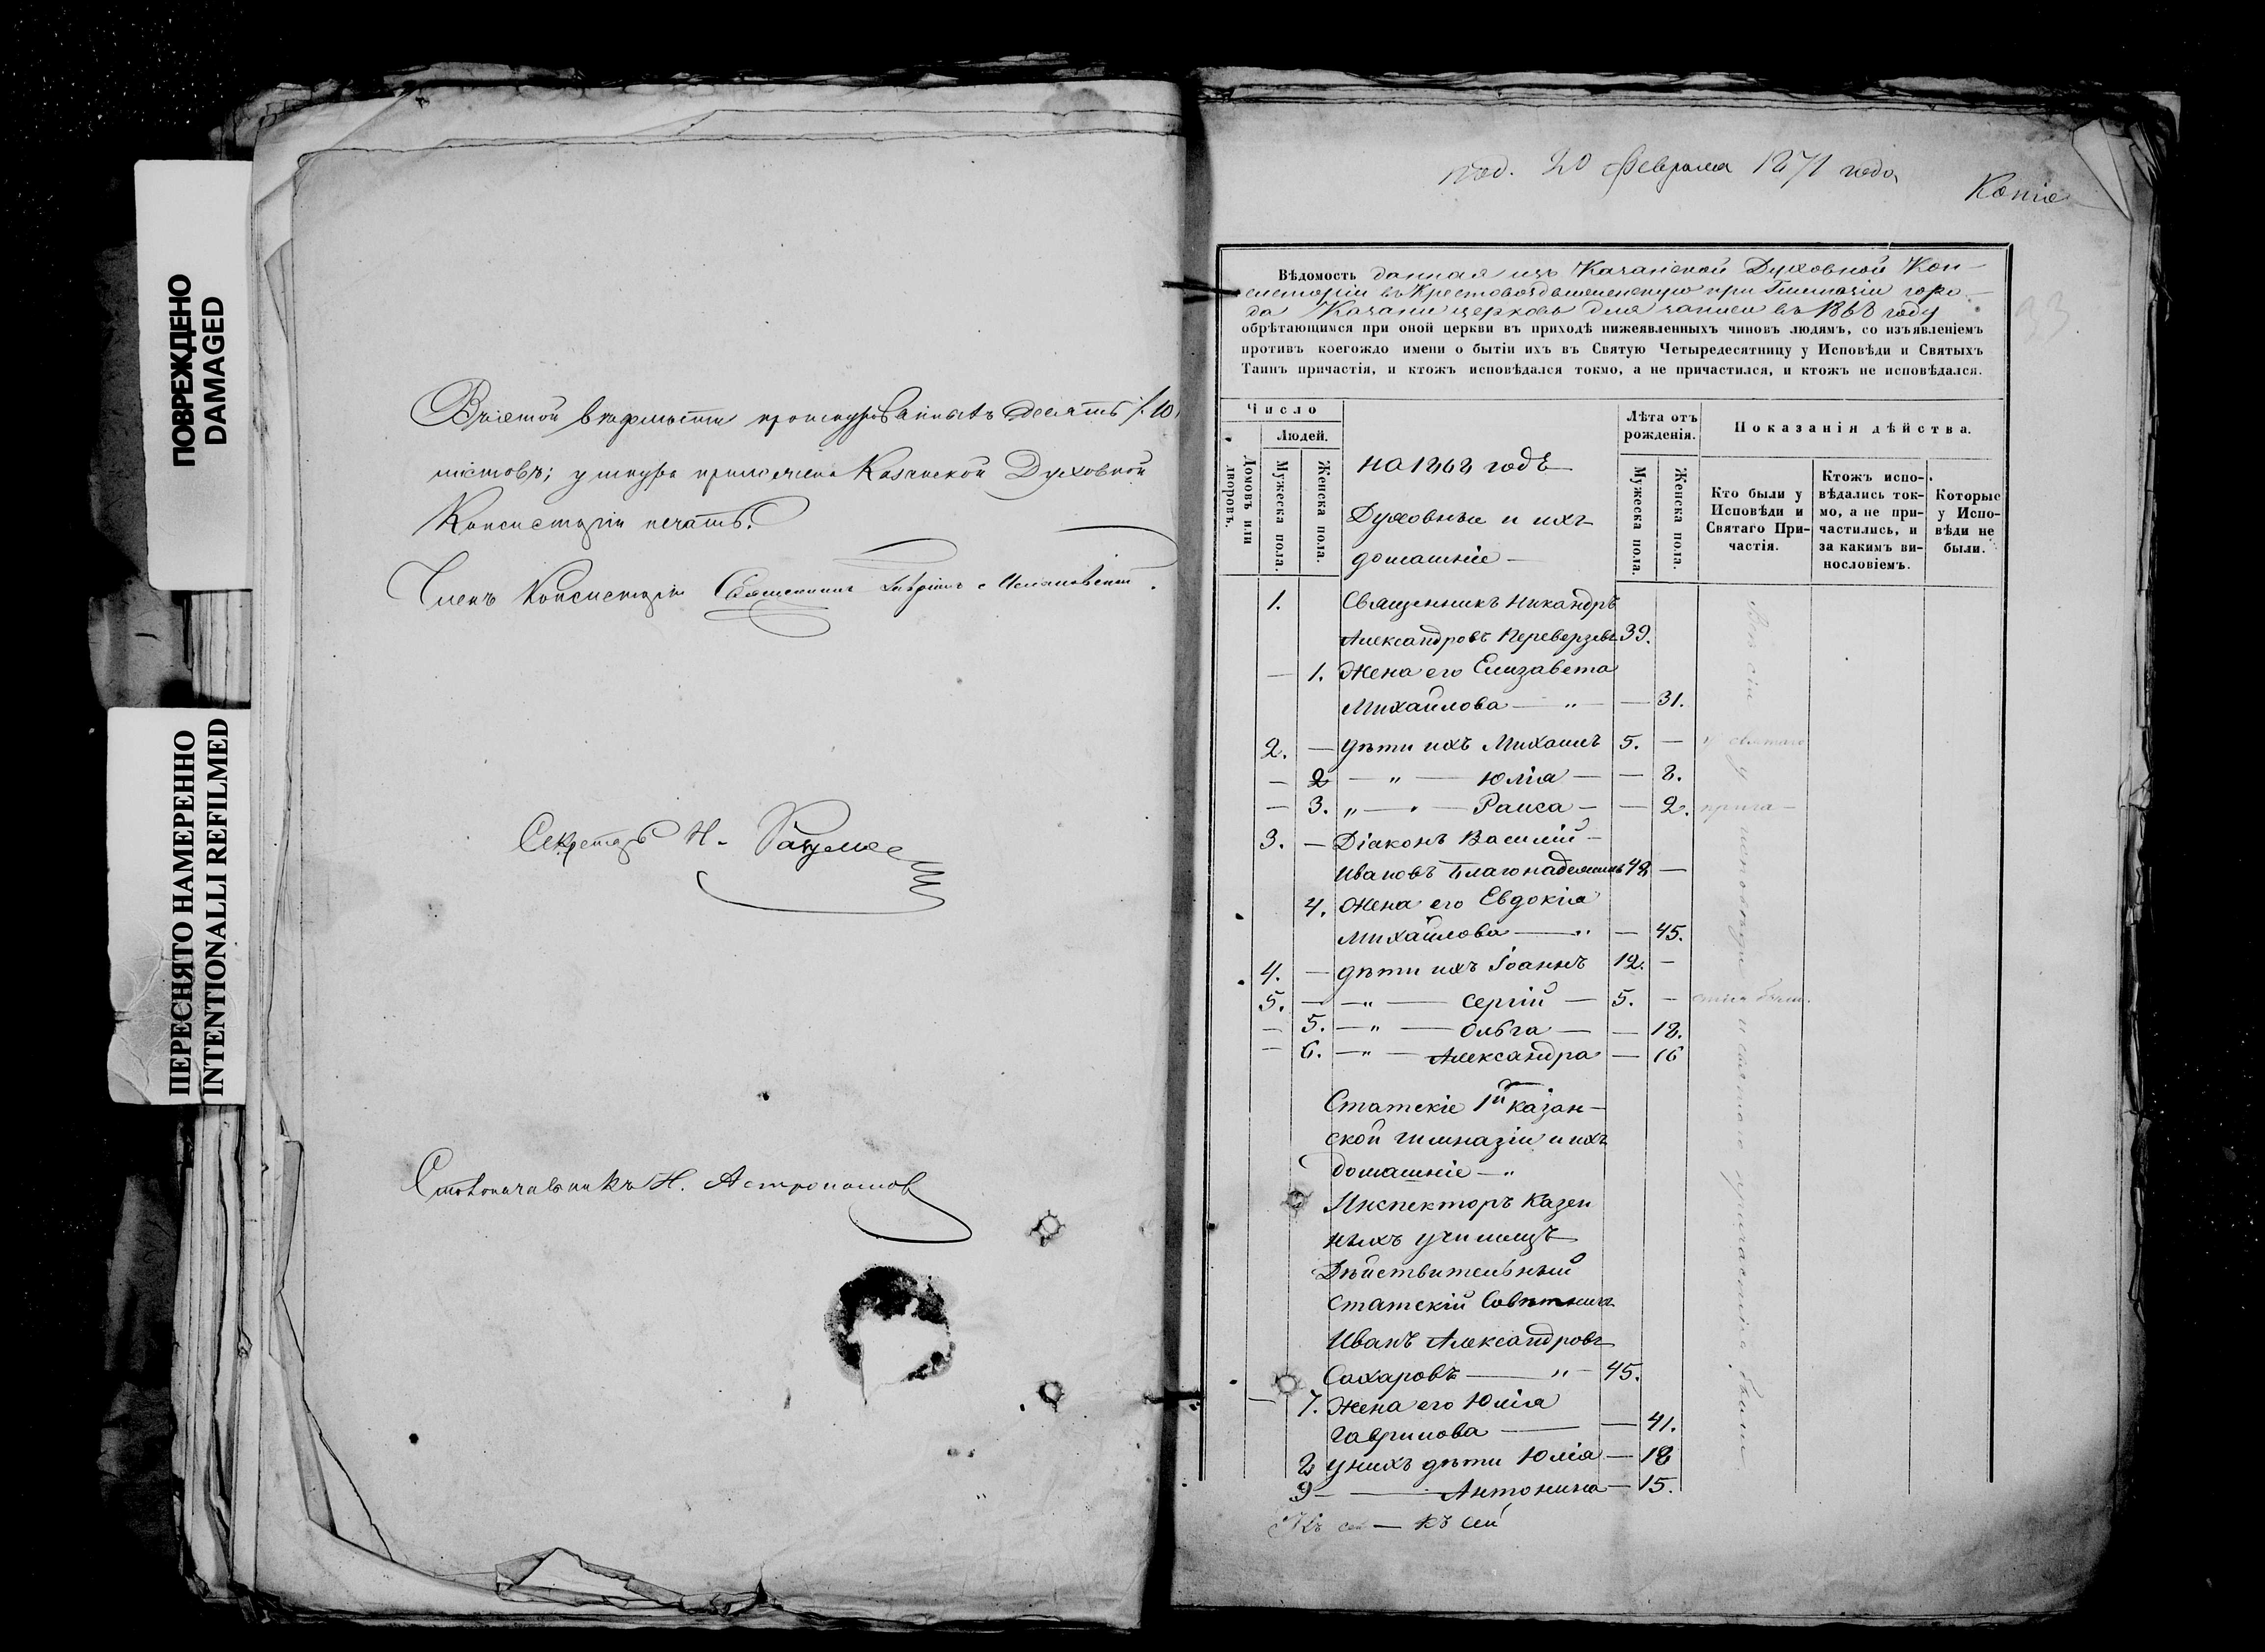 ПОВРЕЖДЕНО
DAMAGED
ПЕРЕСНЯТО НАМЕРЕННО
INTENTIONALLI REFILMED
десять /. 10
листовъ; у шнура приложена Казанской Духовной
Консисторіи печать.
Членъ Консисторіи Священникъ
Секретарь Н.
Столоначальникъ Н. Астрономов
под. 20 Февраля 1871 года
Копія
33
Вѣдомость данная изъ Казанской Духовной Кон-
систоріи въ Крестовоздвиженскую при Гимназіи горо-
да Казани церковь для записи въ 1868 году
обрѣтающимся при оной церкви въ приходѣ нижеявленныхъ чиновъ людямъ, со изъявленіемъ
противъ коегождо имени о бытіи ихъ въ Святую Четыредесятницу у Исповѣди и Святыхъ
Таинъ причастія, и ктожъ исповѣдался токмо, а не причастился, и ктожъ не исповѣдался.
Число
Людей.
Домовъ или дворовъ.
Мужеска пола.
Женска пола.
на 1868 годъ
Духовные и ихъ
домашніе —
Лѣта отъ рожденія.
Мужеска пола.
Женска пола.
Показанія дѣйства.
Кто были у Исповѣди и Святаго При-частія.
Ктожъ испо-вѣдались ток-мо, а не при-частились, и за какимъ ви-нословіемъ.
Которые у Испо-вѣди не были.
1. Священникъ Никандръ
Александровъ Переверзевъ 39.
— 1. Жена его Елизавета
Михайлова — „ — 31.
2. — дѣти ихъ Михаилъ 5. —
— 2 — „ — Юлія — — 8.
— 3. „ — „ — Раиса — — 2.
3. — Діаконъ Василій —
Ивановъ Благонадеждинъ 48 —
4. Жена его Евдокія
Михайлова — „ — 45.
4. — дѣти ихъ Іоаннъ 12. —
5. — — „ — Сергій — 5. —
— 5. — „ — Ольга — — 18.
— 6. — „ — Александра — 16
Статскіе 1й Казан-
ской гимназіи и ихъ
домашніе — „
Инспекторъ Казен
ныхъ училищъ
Дѣйствительный
Статскій Совѣтникъ
Иванъ Александровъ
Сахаровъ — „ — 45.
— 7. Жена его Юлія
Гаврилова — — 41.
8 у нихъ дѣти Юлія — 18
9 — — Антонина — 15.
Къ сей — Къ сей
Всѣ сіи у исповѣди и святаго причастія были
у святаго
прича —
стія были.